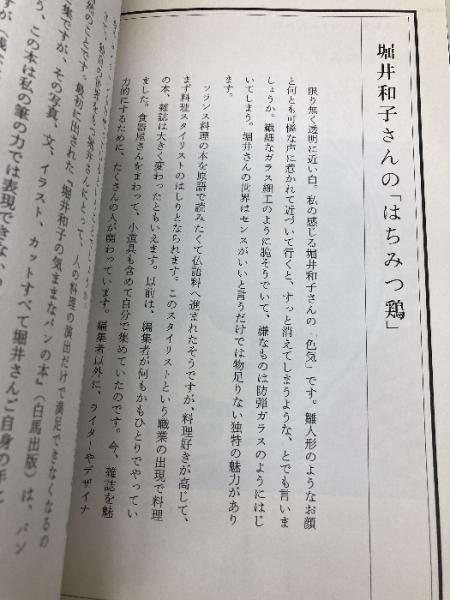 堀井和子さんの「はちみつ鶏」
限り無く透明に近い白。私の感じる堀井和子さんの「色気」です。雛人形のようなお顔
と何とも可憐な声に惹かれて近づいて行くと、すっと消えてしまうような、とでも言いま
しょうか。繊細なガラス細工のように脆そうでいて、嫌なものは防弾ガラスのようにはじ
いてしまう。堀井さんの世界はセンスがいいと言うだけでは物足りない独特の魅力があり
ます。
フランス料理の本を原語で読みたくて仏語科へ進まれたそうですが、料理好きが高じて、
まず料理スタイリストのはしりとなられます。このスタイリストという職業の出現で料理
の本、雑誌は大きく変わったともいえます。以前は、編集者が何もかもひとりでやってい
ました。食器屋さんをまわって、小道具も含めて自分で集めていたのです。今、雑誌を魅
力的にするために、たくさんの人が関わっています。編集者以外に、ライターやデザイナ
人の料理の演出だけで満足できなくなるの
のことです。最初に出された『堀井和子の気ままなパンの本』(白馬出版)は、パン
集ですが、その写真、文、イラスト、カットすべて堀井さんご自身の手に
う、この本は私の筆の力では表現できない